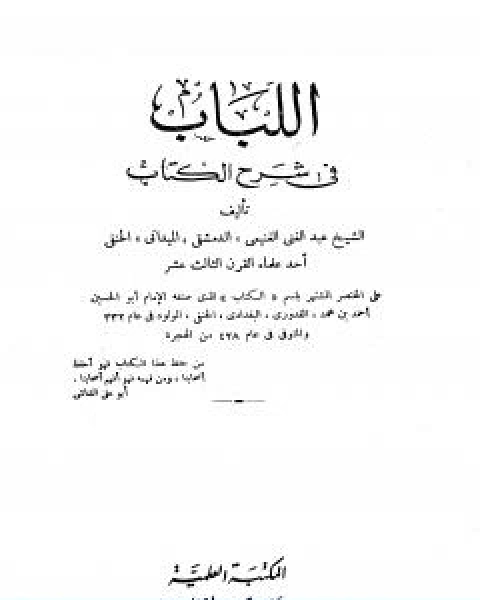 اللباب
في شرح الكتاب
تأليف
الشيخ عبد الغنى الغنيمى، الدمشقى، الميدانى، الحنفى
أحد علماء القرن الثالث عشر
على المختصر المشتهر باسم «الكتاب» الذى صنفه الإمام أبو الحسين
أحمد بن محمد، القدورى، البغدادى، الحنفى، المولود فى عام ٣٣٢
والمتوفى فى عام ٤٢٨ من الهجرة
من حفظ هذا الكتاب فهو أحفظ
أصحابنا، ومن فهمه فهو أفهم أصحابنا.
أبو على الشاشى
المكتبة العلمية